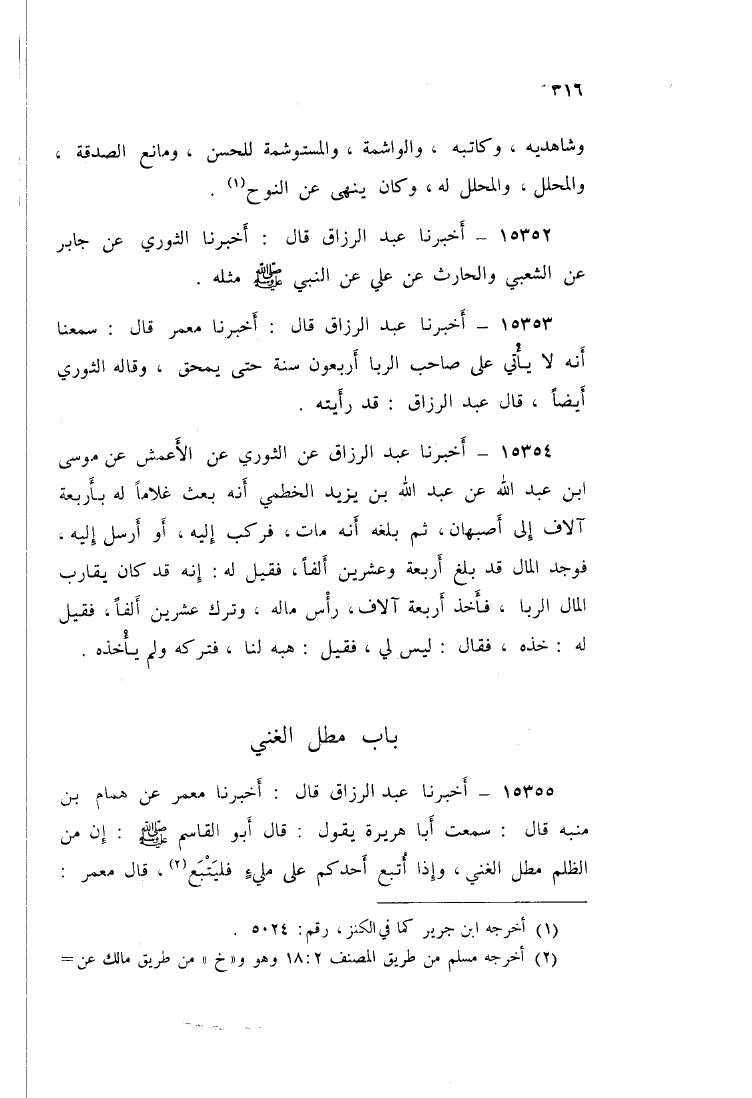 ٣١٦
وشاهديه ، وكاتبه ، والواشمة ، والمستوشمة للحسن ، ومانع الصدقة ،
والمحلل ، والمحلل له ، وكان ينهى عن النوح(١) .
١٥٣٥٢ – أخبرنا عبد الرزاق قال : أخبرنا الثوري عن جابر
عن الشعبي والحارث عن علي عن النبي ﷺ مثله .
١٥٣٥٣ – أخبرنا عبد الرزاق قال : أخبرنا معمر قال : سمعنا
أنه لا يأتي على صاحب الربا أربعون سنة حتى يمحق ، وقاله الثوري
أيضاً ، قال عبد الرزاق : قد رأيته .
١٥٣٥٤ – أخبرنا عبد الرزاق عن الثوري عن الأعمش عن موسى
ابن عبد الله عن عبد الله بن يزيد الخطمي أنه بعث غلاماً له بأربعة
آلاف إلى أصبهان، ثم بلغه أنه مات، فركب إليه، أو أرسل إليه،
فوجد المال قد بلغ أربعة وعشرين ألفاً، فقيل له : إنه قد كان يقارب
المال الربا ، فأخذ أربعة آلاف، رأس ماله ، وترك عشرين ألفاً، فقيل
له : خذه ، فقال : ليس لي ، فقيل : هبه لنا ، فتركه ولم يأخذه .
باب مطل الغني
١٥٣٥٥ – أخبرنا عبد الرزاق قال : أخبرنا معمر عن همام بن
منبه قال : سمعت أبا هريرة يقول : قال أبو القاسم ﷺ : إن من
الظلم مطل الغني ، وإذا أُتبع أحدكم على مليءٍ فليَتْبَع(٢) ، قال معمر :
(١) أخرجه ابن جرير كما في الكنز ، رقم: ٥٠٢٤ .
(٢) أخرجه مسلم من طريق المصنف ١٨:٢ وهو و«خ» من طريق مالك عن =